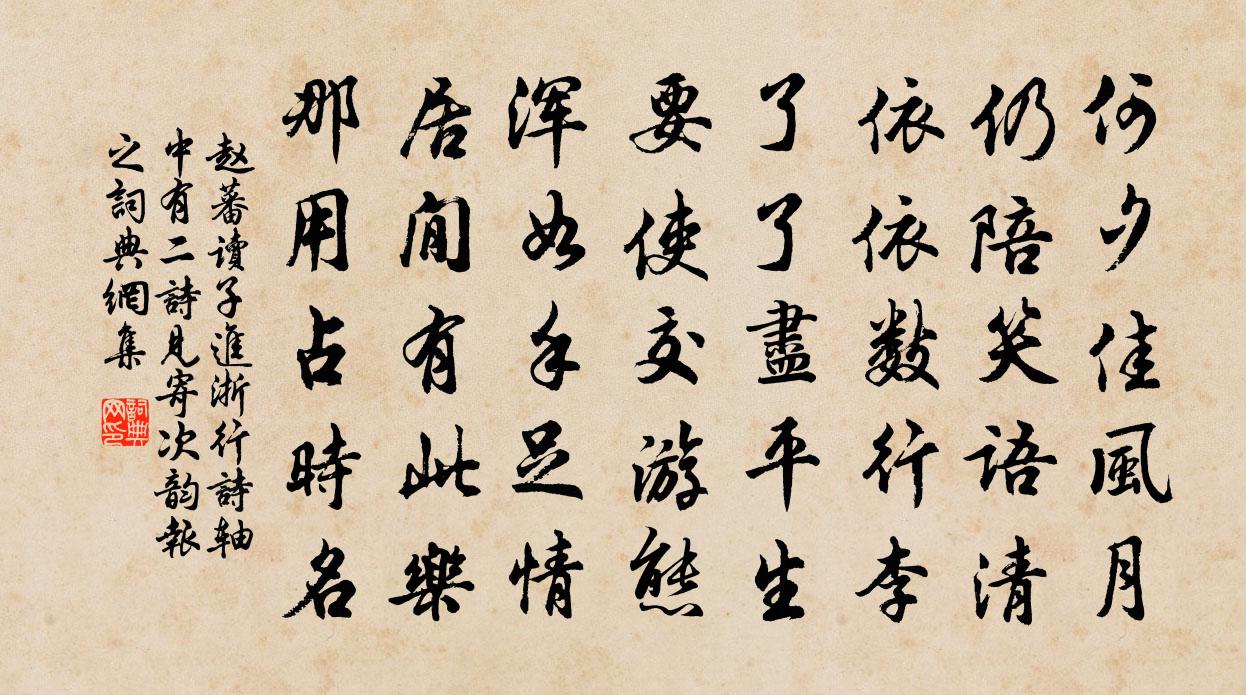 何夕佳風月
仍陪笑語清
依依數行李
了了盡平生
要使交游態
渾如手足情
居閒有此樂
那用占時名
赵蕃讀子進浙行詩轴
中有二詩見寄次韵報
之詞典網集
詞典
网印